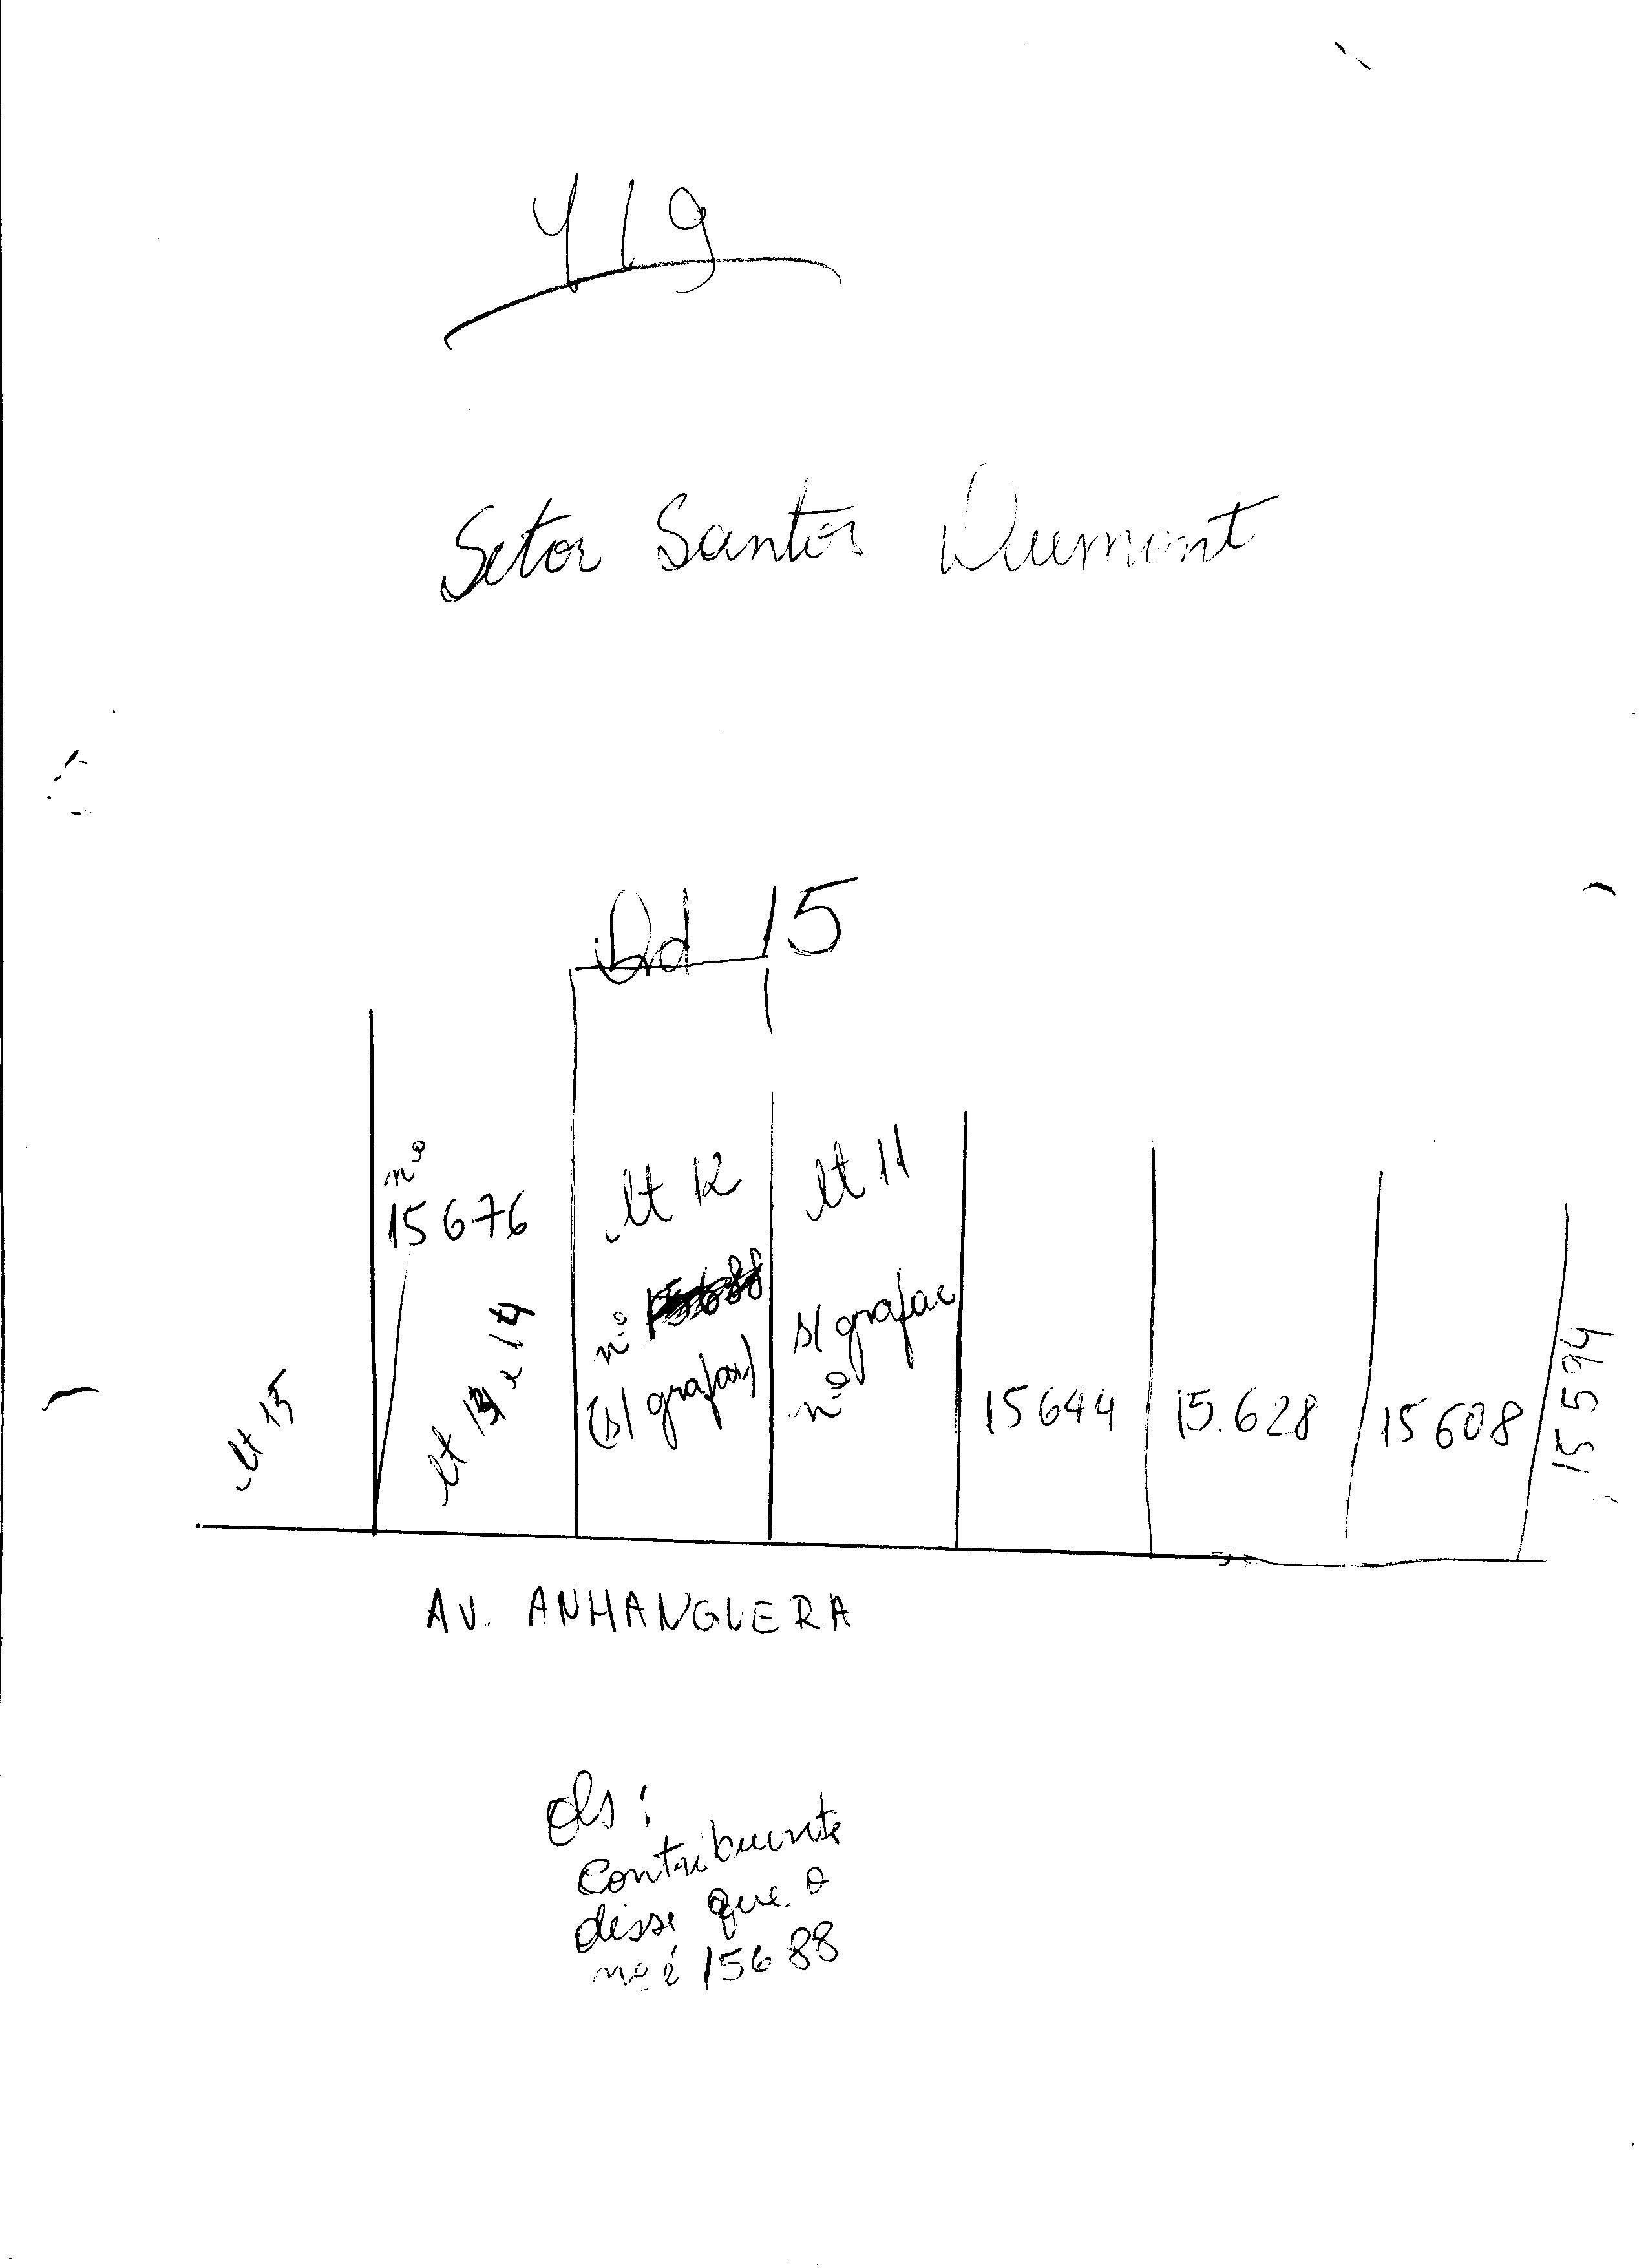 419
Setor Santos Dumont
Qd 15
nº
15676
lt 12
lt 11
nº 15688
(s/ grafar)
s/ grafar
nº
lt 15
lt 13 e 14
15644
15.628
15608
15594
AV. ANHANGUERA
Obs:
Contribuinte
disse que o
nº é 15688